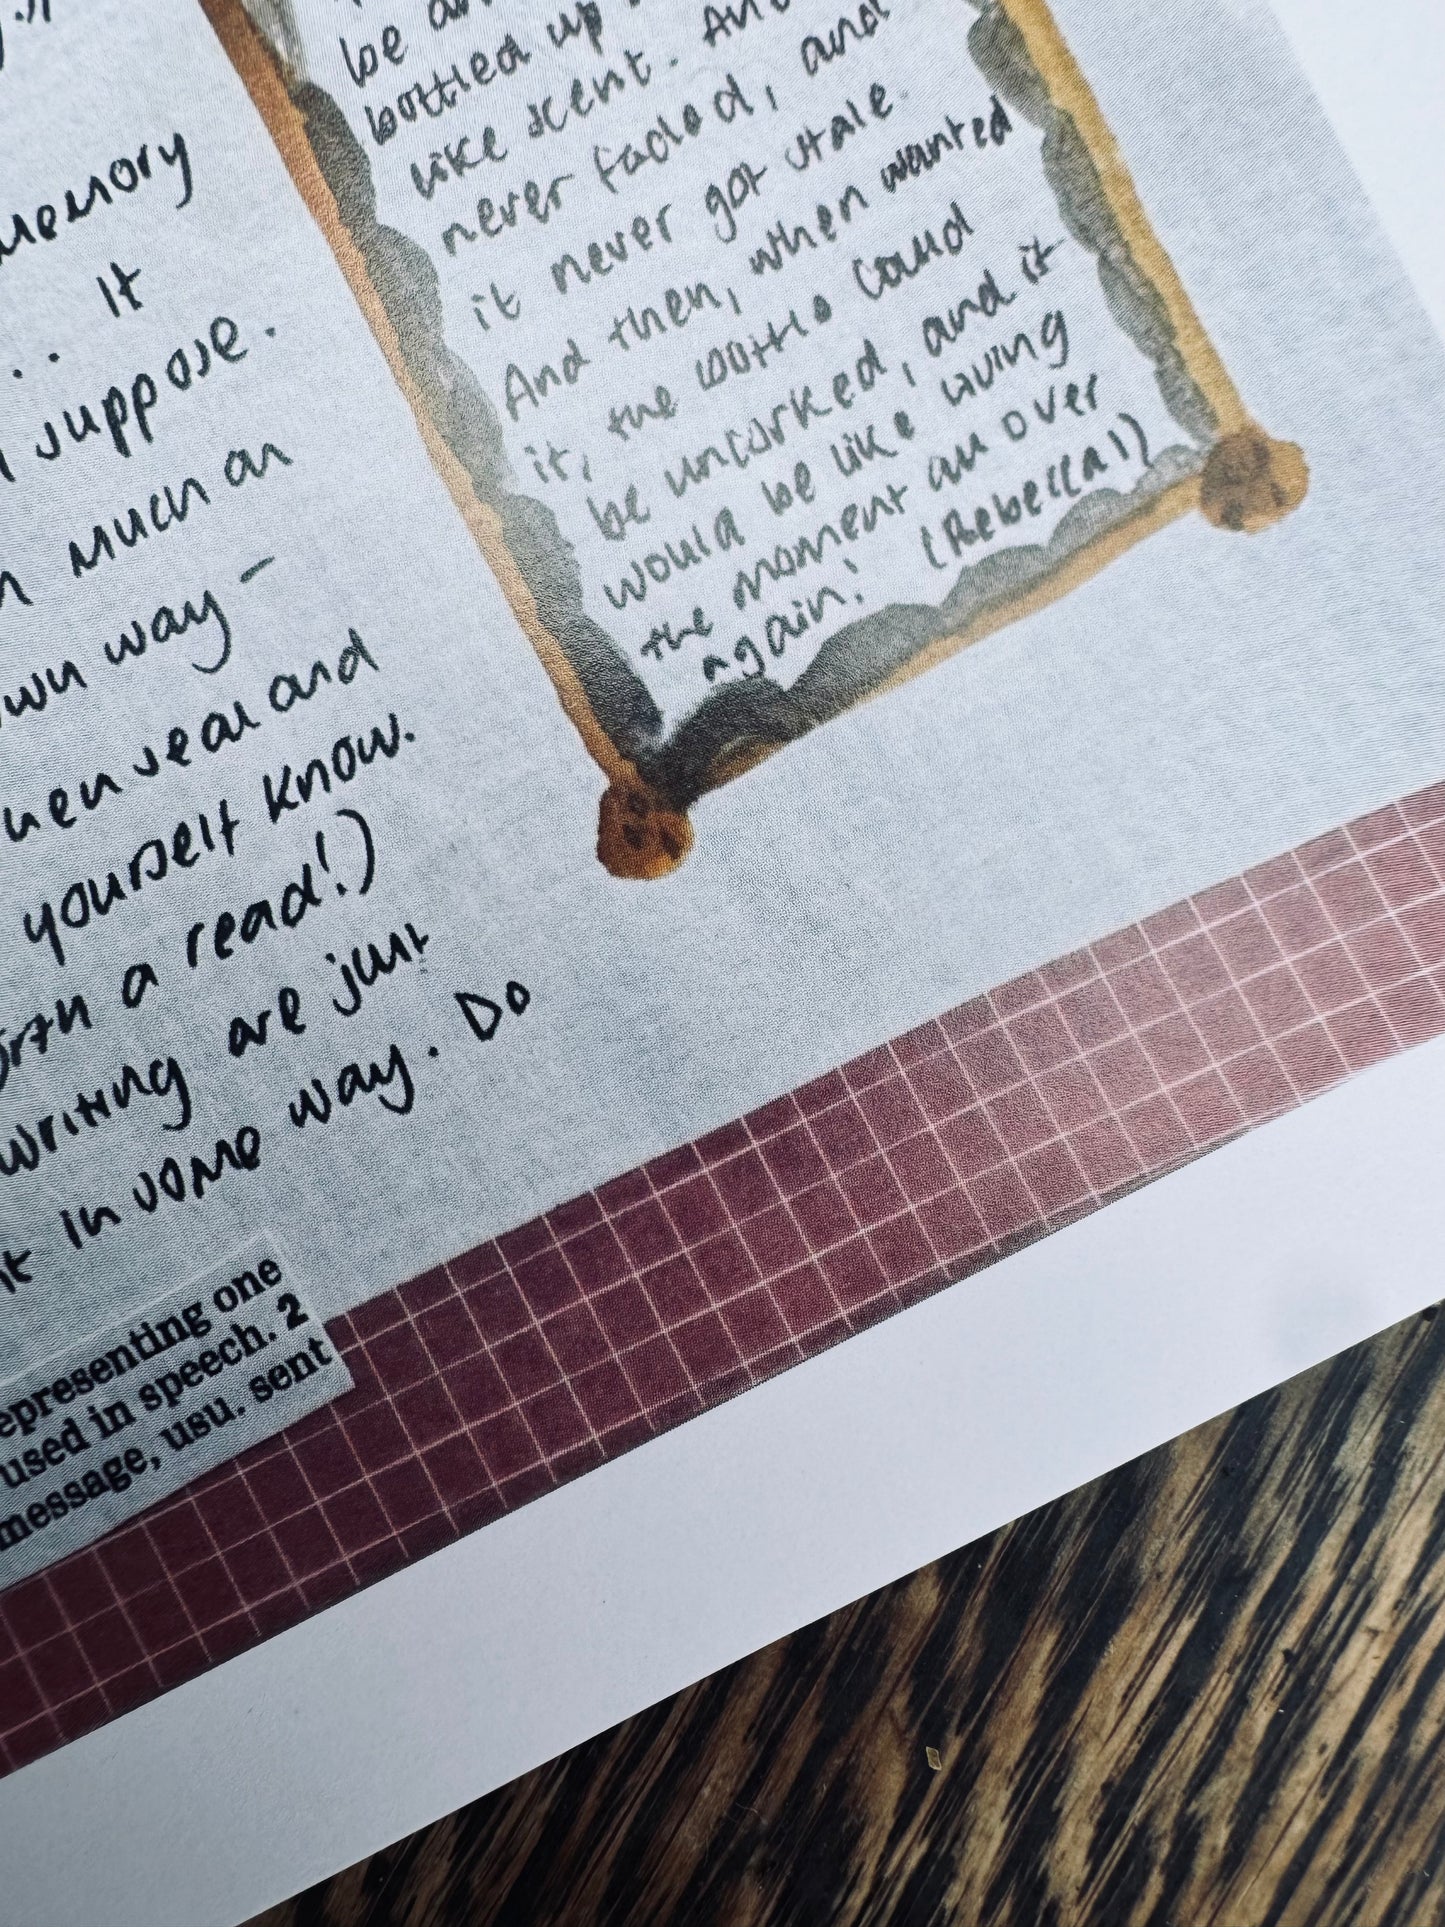 memory
. . It
suppose.
much an
own way –
when seal and
yourself know.
worth a read!)
writing are just
in some way. Do
be an
bottled up
like scent. And
never faded, and
it never got stale.
And then, when wanted
it, the bottle could
be uncorked, and it
would be like living
the moment all over
again. (Rebecca)
epresenting one
used in speech. 2
message, usu. sent